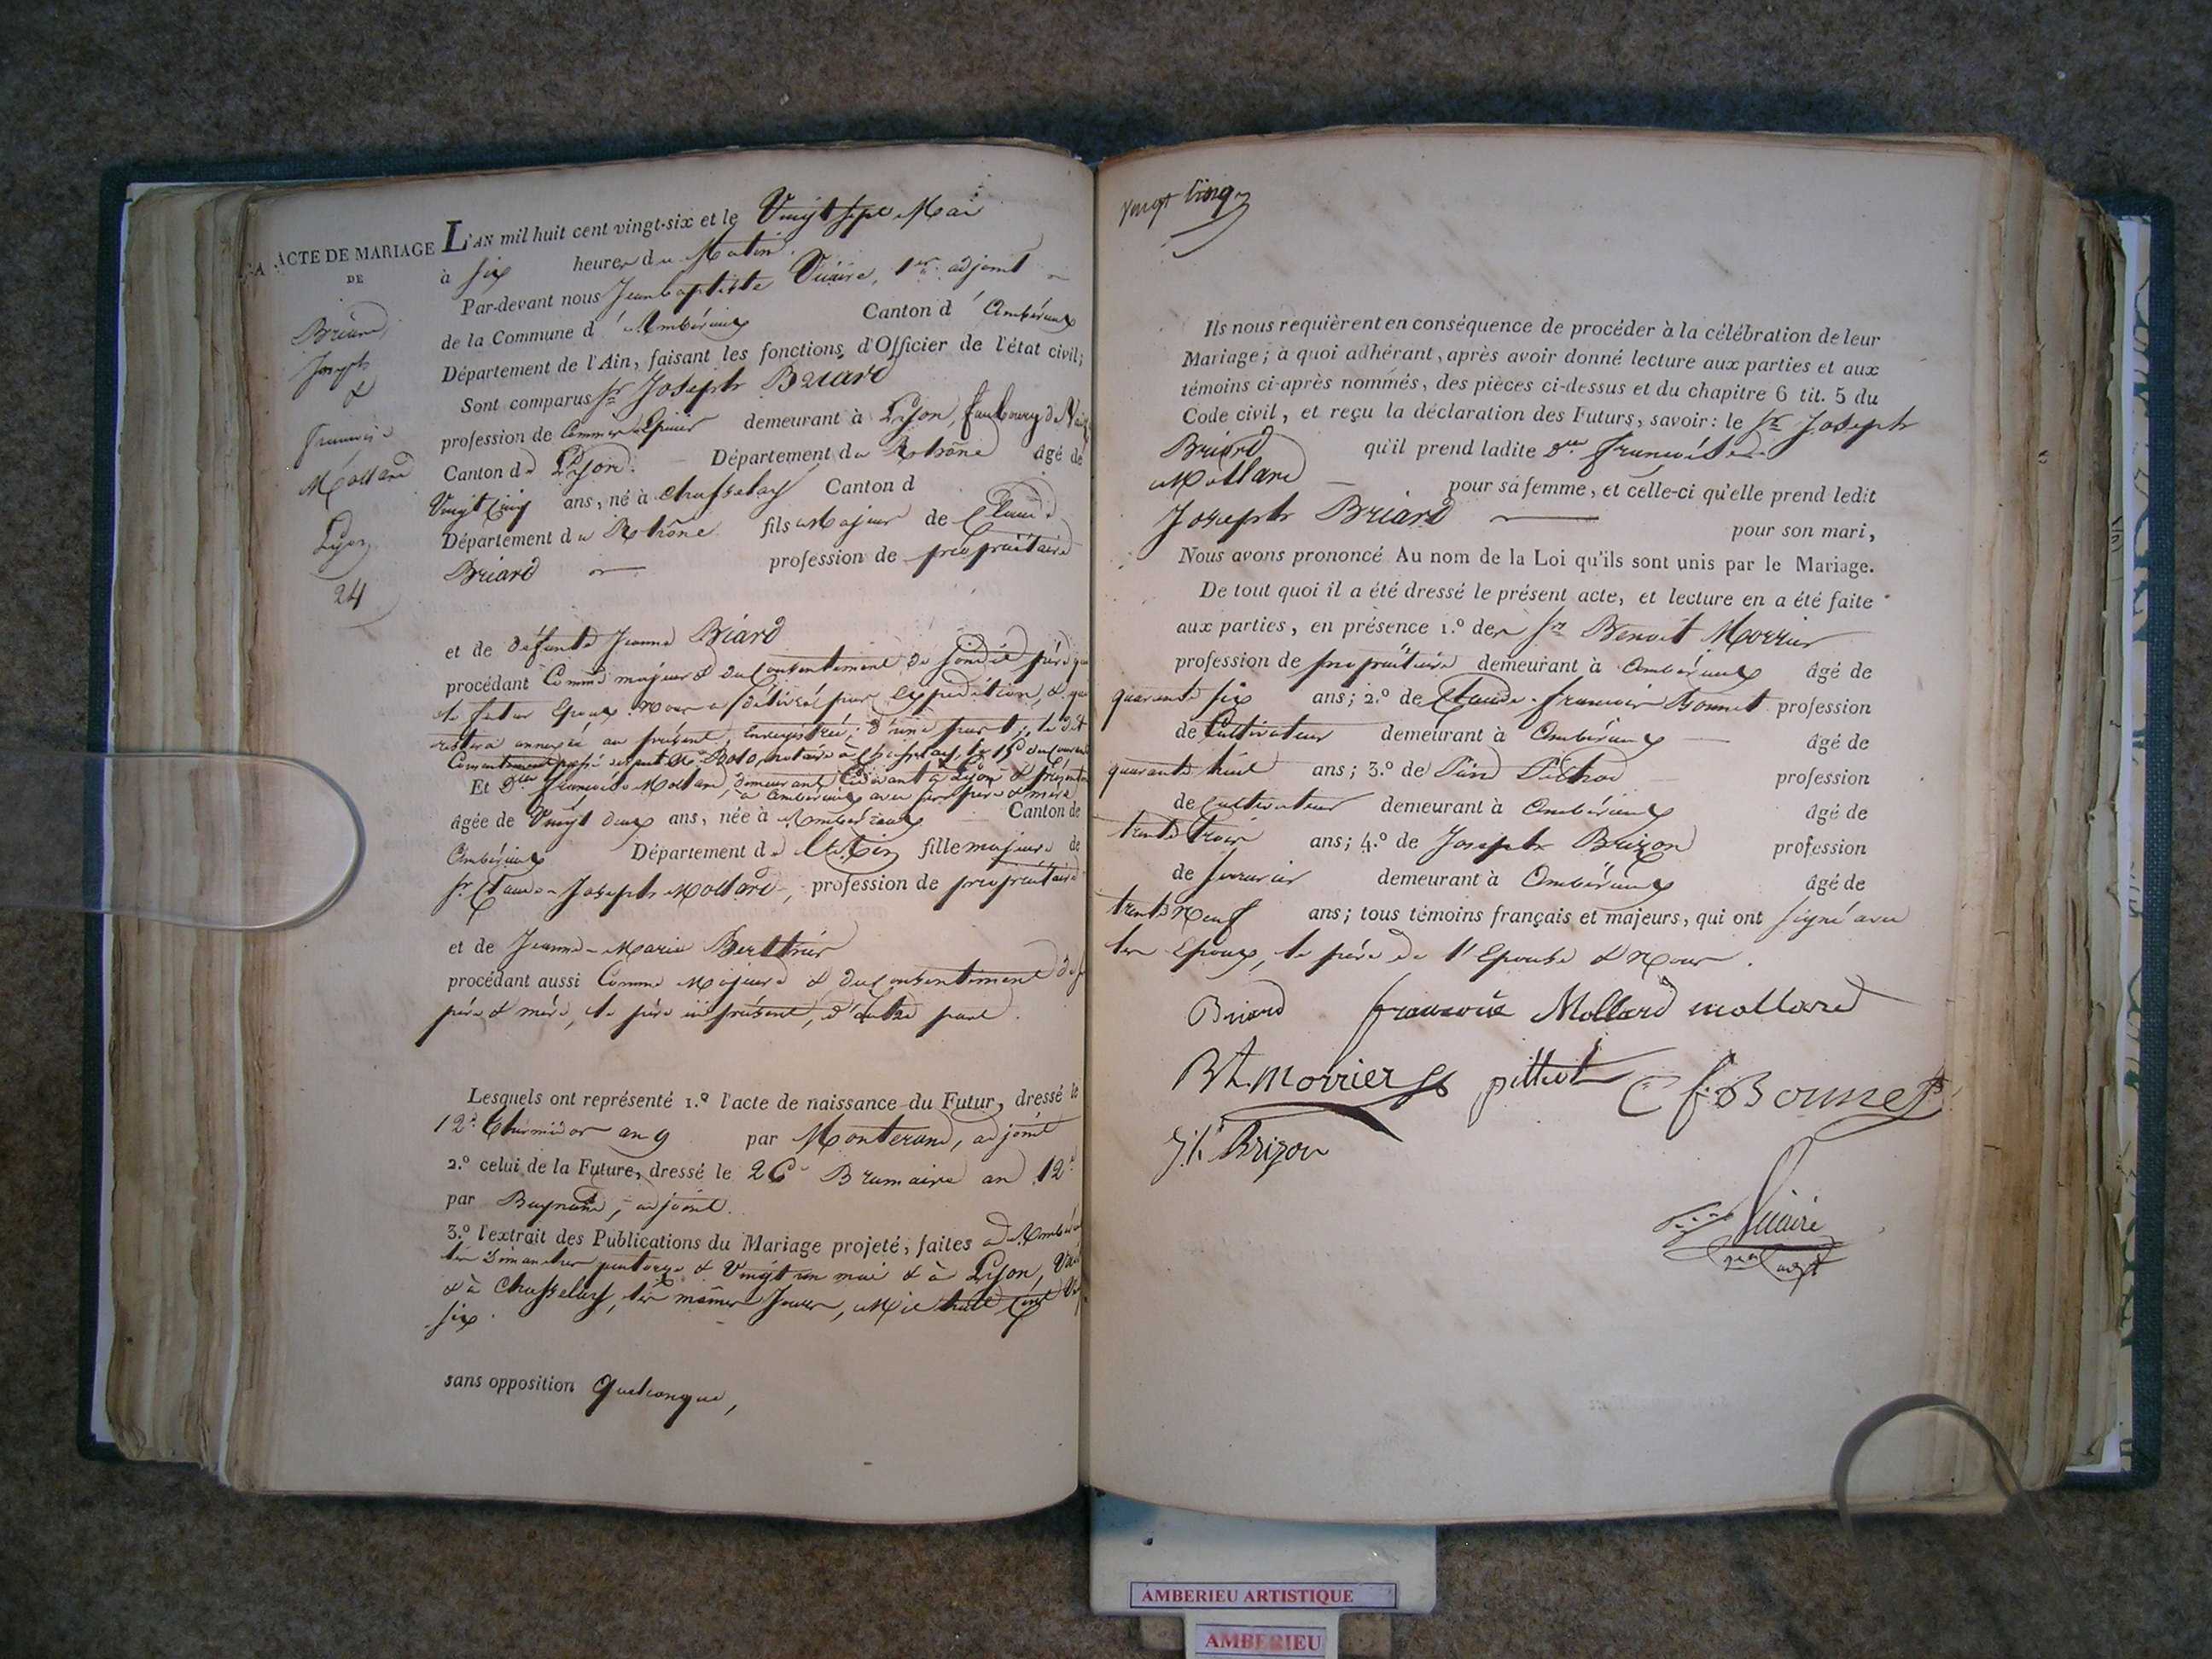 ACTE DE MARIAGE
DE
Briard
Joseph
&
Françoise
Mollard
Lyon
24
L'AN mil huit cent vingt-six et le Vingt sept Mai
à six heures du Matin.
Par-devant nous Jean baptiste Vicaire, 1er adjoint
de la Commune d'Ambérieux Canton d'Ambérieux
Département de l'Ain, faisant les fonctions d'Officier de l'état civil;
Sont comparus Sr Joseph Briard
profession de Commis Epicier demeurant à Lyon, faubourg de Vaize
Canton de Lyon. Département du Rohône âgé de
Vingt Cinq ans, né à Chasselay Canton d
Département du Rohône fils Majeur de Claude
Briard profession de propriétaire
et de défunte Jeanne Biard
procédant Comme majeur & du Consentement de sondit père que
le futur Epoux nous a délivré par expédition, & qui
restera annexée au présent, Enregistrée, d'une part; le dit
Consentement passé devant Me notaire à Chasselay, le 15 du Courant
Et Dlle Françoise Mollard, demeurant Cidevant à Lyon & présentement
à Ambérieux avec ses père & mère
âgée de Vingt deux ans, née à Ambérieux Canton de
Ambérieux Département de l'Ain fille majeure de
Sr Claude-Joseph Mollard, profession de propriétaire
et de Jeanne-Marie Berthier
procédant aussi Comme Majeure & du Consentement de ses
père & mère, le père ici présent, d'autre part.
Lesquels ont représenté 1.º l'acte de naissance du Futur, dressé le
12e Thermidor an 9 par Monterand, adjoint
2.º celui de la Future, dressé le 26e Brumaire an 12e
par adjoint.
3.º l'extrait des Publications du Mariage projeté, faites à Ambérieux
les Dimanches quatorze & Vingt un mai & à Lyon,
& à Chasselay, les mêmes Jours, Mil huit Cent
six.
sans opposition Quelconque,
vingt Cinq
Ils nous requièrent en conséquence de procéder à la célébration de leur
Mariage; à quoi adhérant, après avoir donné lecture aux parties et aux
témoins ci-après nommés, des pièces ci-dessus et du chapitre 6 tit. 5 du
Code civil, et reçu la déclaration des Futurs, savoir: le Sr Joseph
Briard qu'il prend ladite Dlle françoise
Mollard pour sa femme, et celle-ci qu'elle prend ledit
Joseph Briard pour son mari,
Nous avons prononcé Au nom de la Loi qu'ils sont unis par le Mariage.
De tout quoi il a été dressé le présent acte, et lecture en a été faite
aux parties, en présence 1.º des Sr Benoit Morrier
profession de propriétaire demeurant à Ambérieux âgé de
quarante six ans; 2.º de Claude-françois Bonnet profession
de Cultivateur demeurant à Ambérieux âgé de
quarante huit ans; 3.º de profession
de Cultivateur demeurant à Ambérieux âgé de
trente trois ans; 4.º de Joseph Brizon profession
de serrurier demeurant à Ambérieux âgé de
trente Neuf ans; tous témoins français et majeurs, qui ont signé avec
les Epoux, le père de l'Epouse & Nous.
Briard françoise Mollard mollard
Bt. Morrier C f. Bonnet
Jh Brizon
Vicaire
1er adjt
AMBERIEU ARTISTIQUE
AMBERIEU